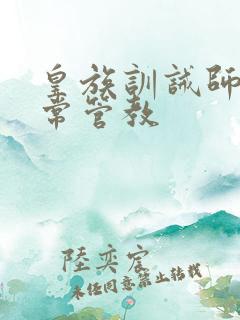 皇族訓誡師
常管教
陸奕宸
未经同意禁止转载